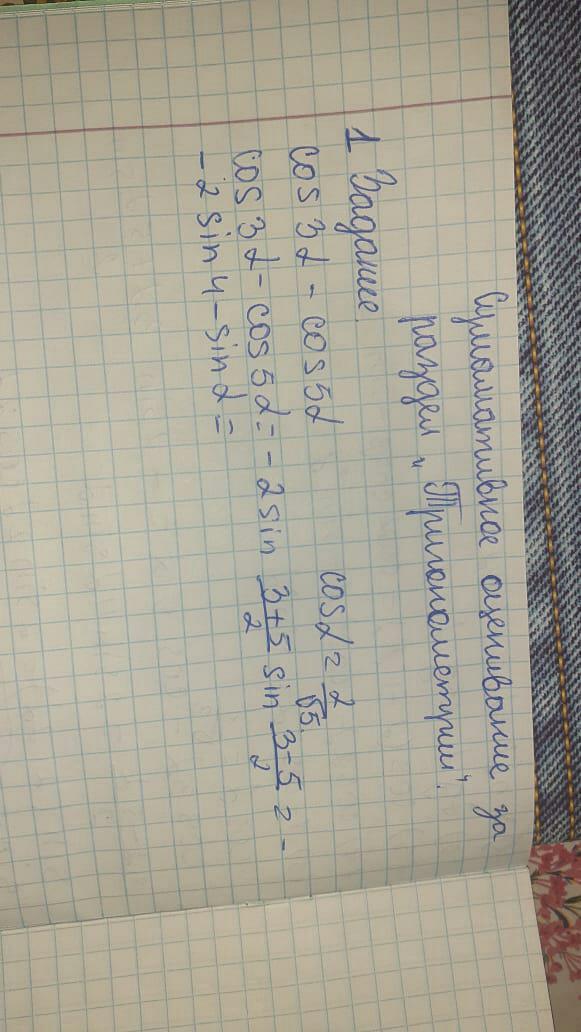 Суммативное оценивание за
раздел „Тригонометрии".
1 Задание.
cos 3α - cos 5α cosα = 2/√5.
cos 3α - cos 5α = - 2 sin 3+5/2 sin 3-5/2 = -
- 2 sin 4 - sin α =